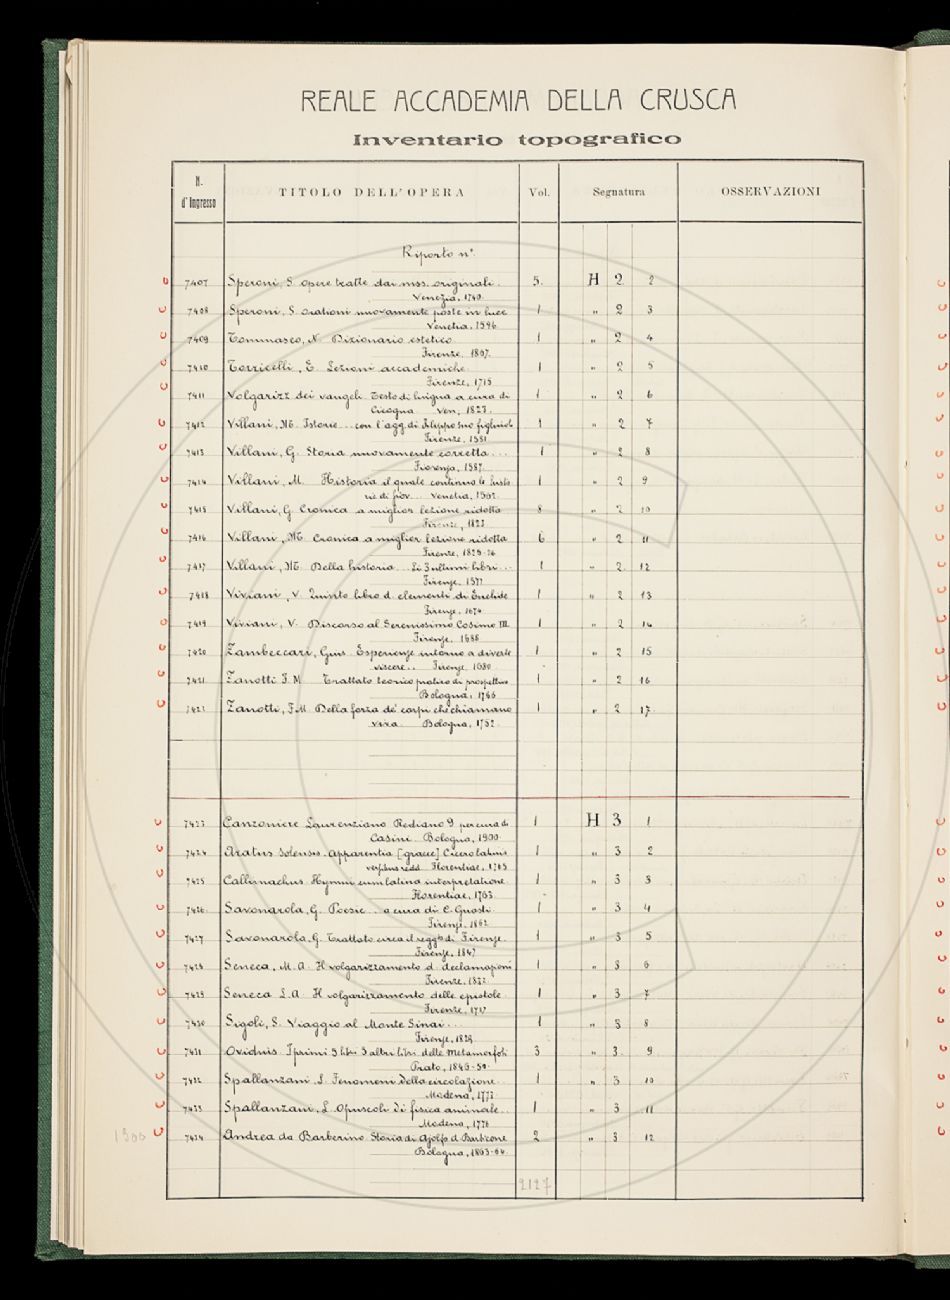 REALE ACCADEMIA DELLA CRUSCA
Inventario topografico
N. d'Ingresso TITOLO DELL'OPERA Vol. Segnatura OSSERVAZIONI
Riporto n°
7407 Speroni, S. opere tratte dai mss. originali. 5. H 2 2
Venezia, 1740.
7408 Speroni, S. orationi nuovamente poste in luce 1 " 2 3
Venetia, 1596
7409 Tommaseo, N. Dizionario estetico 1 " 2 4
Firenze, 1867.
7410 Torricelli, E. Lezioni accademiche 1 " 2 5
Firenze, 1715
7411 Volgarizz dei vangeli Testo di lingua a cura di 1 " 2 6
Cicogna Ven, 1823.
7412 Villani, M. Istorie... con l'agg. di Filippo suo figliuolo 1 " 2 7
Firenze, 1581
7413 Villani, G. Storia nuovamente corretta... 1 " 2 8
Fiorenza, 1587.
7414 Villani, M. Historia il quale continua le 1 " 2 9
rie di Giov... Venetia, 1562.
7415 Villani, G. Cronica a miglior lezione ridotta 8 " 2 10
Firenze, 1823
7416 Villani, M. Cronica a miglior lezione ridotta 6 " 2 11
Firenze, 1825-26
7417 Villani, M. Della historia... Li 3 ultimi libri... 1 " 2 12
Firenze, 1577
7418 Viviani, V. Quinto libro d. elementi di Euclide 1 " 2 13
Firenze, 1674
7419 Viviani, V. Discorso al Serenissimo Cosimo III. 1 " 2 14
Firenze, 1688
7420 Zambeccari, Gius. Esperienze intorno a diverse 1 " 2 15
viscere.. Firenze, 1680
7421 Zanotti F. M. Trattato teorico pratico di prospettiva 1 " 2 16
Bologna, 1766
7422 Zanotti, F.M. Della forza de' corpi che chiamano 1 " 2 17
viva. Bologna, 1752.
7423 Canzoniere Laurenziano Rediano 9 per cura di 1 H 3 1
Casini. Bologna, 1900.
7424 Aratus Solensis. apparentia [graece] Cicero latinis 1 " 3 2
versibus redd. Florentiae, 1765
7425 Callimachus. Hymni cum latina interpretatione. 1 " 3 3
Florentiae, 1763
7426 Savonarola, G. Poesie... a cura di C. Guasti. 1 " 3 4
Firenze, 1862
7427 Savonarola, G. Trattato circa il regg.to di Firenze. 1 " 3 5
Firenze, 1847
7428 Seneca, M. A. Il volgarizzamento d. declamazioni 1 " 3 6
Firenze, 1832
7429 Seneca L. A. Il volgarizzamento delle epistole. 1 " 3 7
Firenze, 1717
7430 Sigoli, S. Viaggio al Monte Sinai... 1 " 3 8
Firenze, 1829
7431 Ovidius. I primi 5 libri 5 altri libri delle Metamorfosi 3 " 3 9
Prato, 1843-50.
7432 Spallanzani. L. Fenomeni della circolazione. 1 " 3 10
Modena, 1773
7433 Spallanzani, L. Opuscoli di fisica animale.. 1 " 3 11
Modena, 1776
1300 7434 Andrea da Barberino. Storia di Ajolfo d. Barbicone 2 " 3 12
Bologna, 1863-64.
2127